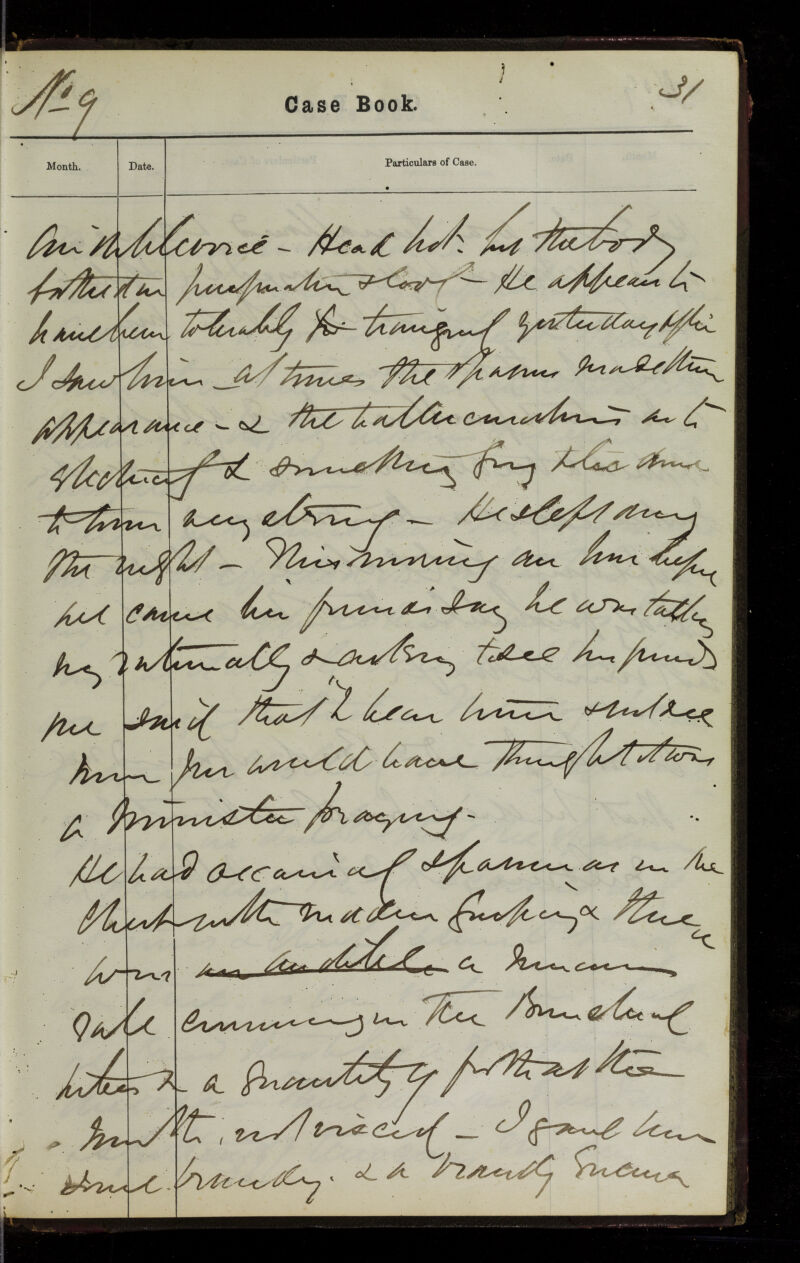 No 9
31
Case Book.
Month. Date. Particulars of Case.
voice - Head hot. but the body
bathed in perspiration & cool - He appears to
have been tolerably tranquil yesterday after
I saw him - at times the spasms made their
appearance - & the hallucinations as to
& something
to him very strong - He slept during
the night - This morning an hour before
we came his friends say he was talking
very rationally & asking to see his friends
one said that "to hear him & to see
him you would have thought it was
a Minister praying -
He had occasional spasms as in the
Chest with sudden gasping & there
was an audible a mucous
rale commencing in the Bronchial
tubes & a quantity of froth at the
mouth, not viscid - I gave him
some brandy. & a brandy Enema